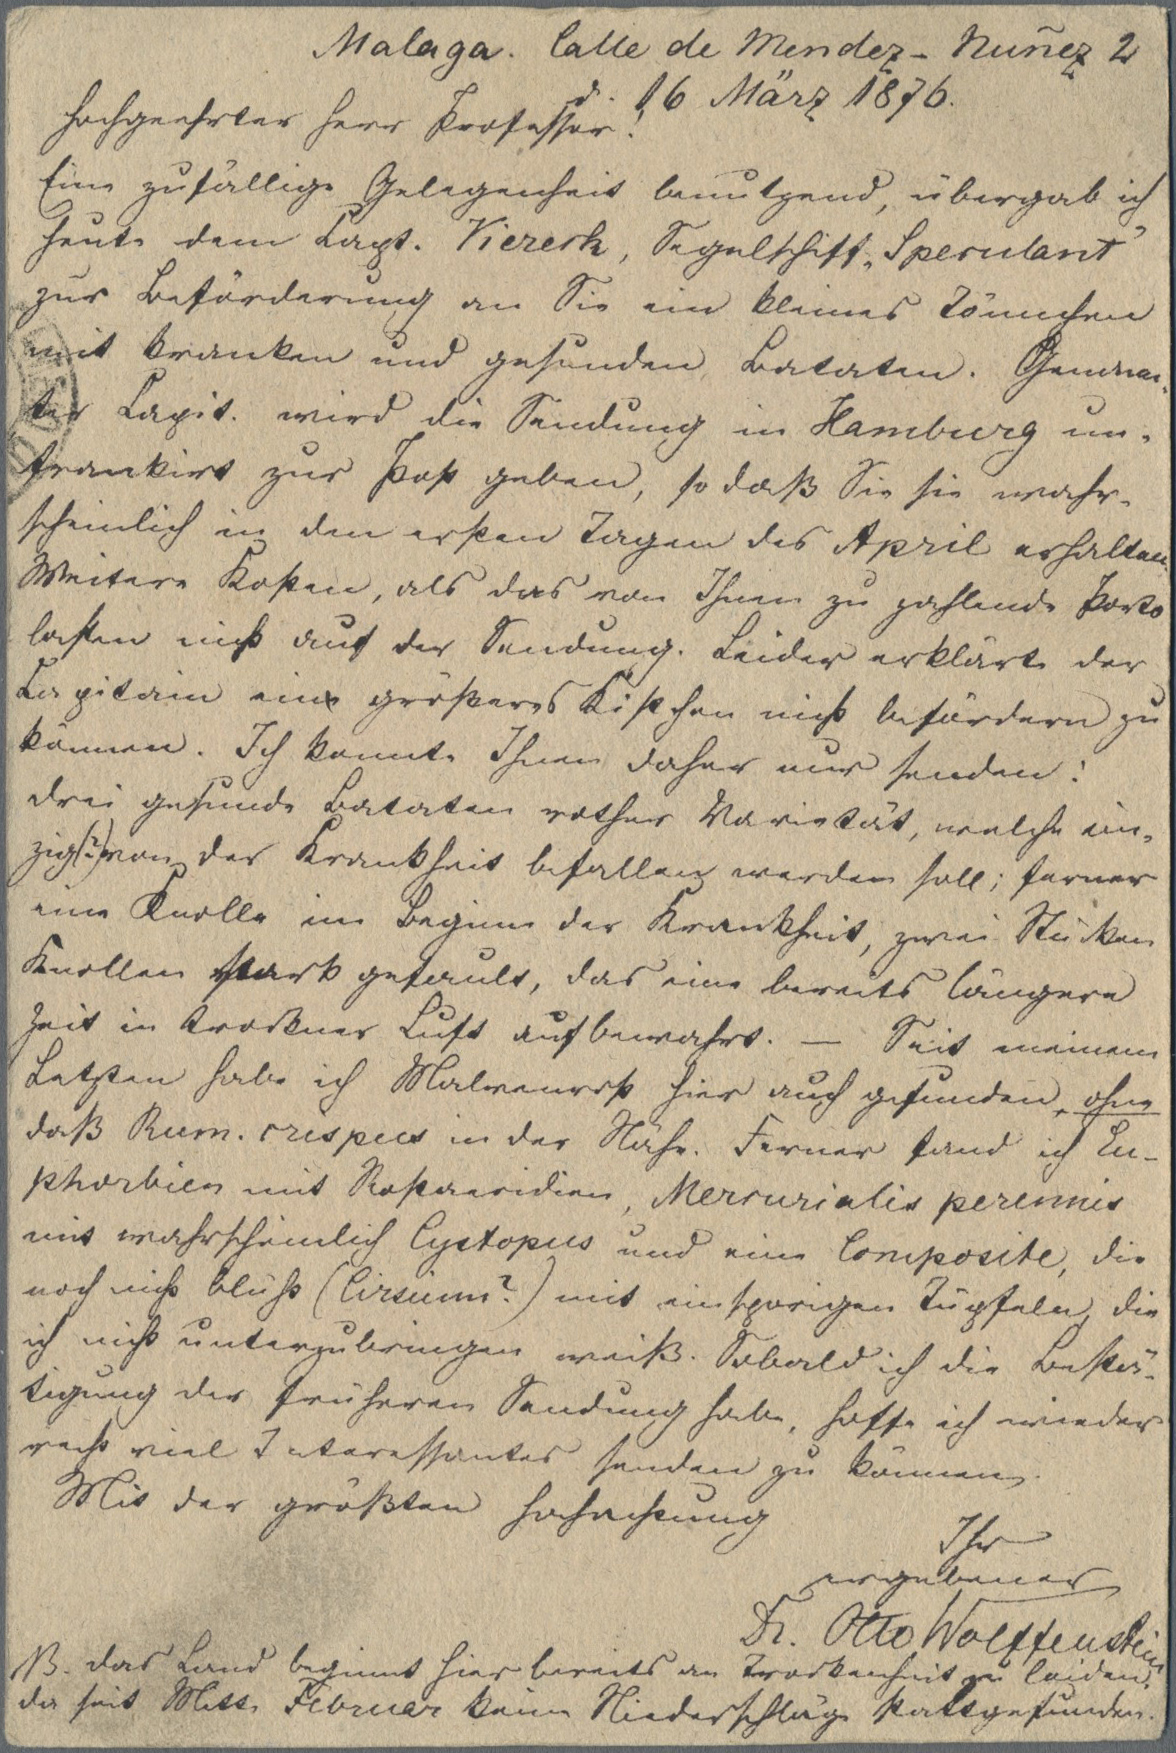 Malaga. Calle de Mendez-Nuñez 2
d. 16 März 1876.
Hochgeehrter Herr Professor!
Eine zufällige Gelegenheit benutzend, übergab ich
heute dem Capt. Viereck, Segelschiff „Speculant"
zur Beförderung an Sie ein kleines Tönnchen
mit kranken und gesunden Bataten. Genann-
ter Capit. wird die Sendung in Hamburg un-
frankirt zur Post geben, so daß Sie sie wahr-
scheinlich in den ersten Tagen des April erhalten.
Weitere Kosten, als das von Ihnen zu zahlende Porto
lasten nicht auf der Sendung. Leider erklärte der
Capitain ein größeres Kistchen nicht befördern zu
können. Ich konnte Ihnen daher nur senden:
drei gesunde Bataten rother Varietät, welche ein-
zig(?) von der Krankheit befallen werden soll; ferner
eine Knolle im Beginn der Krankheit, zwei Stücken
Knollen stark gefault, das eine bereits längere
Zeit in trockner Luft aufbewahrt. — Seit meinem
Letzten habe ich Malvenrost hier auch gefunden, ohne
daß Rum. crispus in der Nähe. Ferner fand ich Eu-
phorbien mit Rostaecidien, Mercurialis perennis
mit wahrscheinlich Cystopus und eine Composite, die
noch nicht blüht (Cirsium?) mit einsporigen Tüpfeln, die
ich nicht unterzubringen weiß. Sobald ich die Bestä-
tigung der früheren Sendung habe, hoffe ich wieder
recht viel Interessantes senden zu können.
Mit der größten Hochachtung
Ihr
ergebener
Dr. Otto Wolffenstein
NB. Das Land beginnt hier bereits an Trockenheit zu leiden,
da seit Mitte Februar keine Niederschläge stattgefunden.